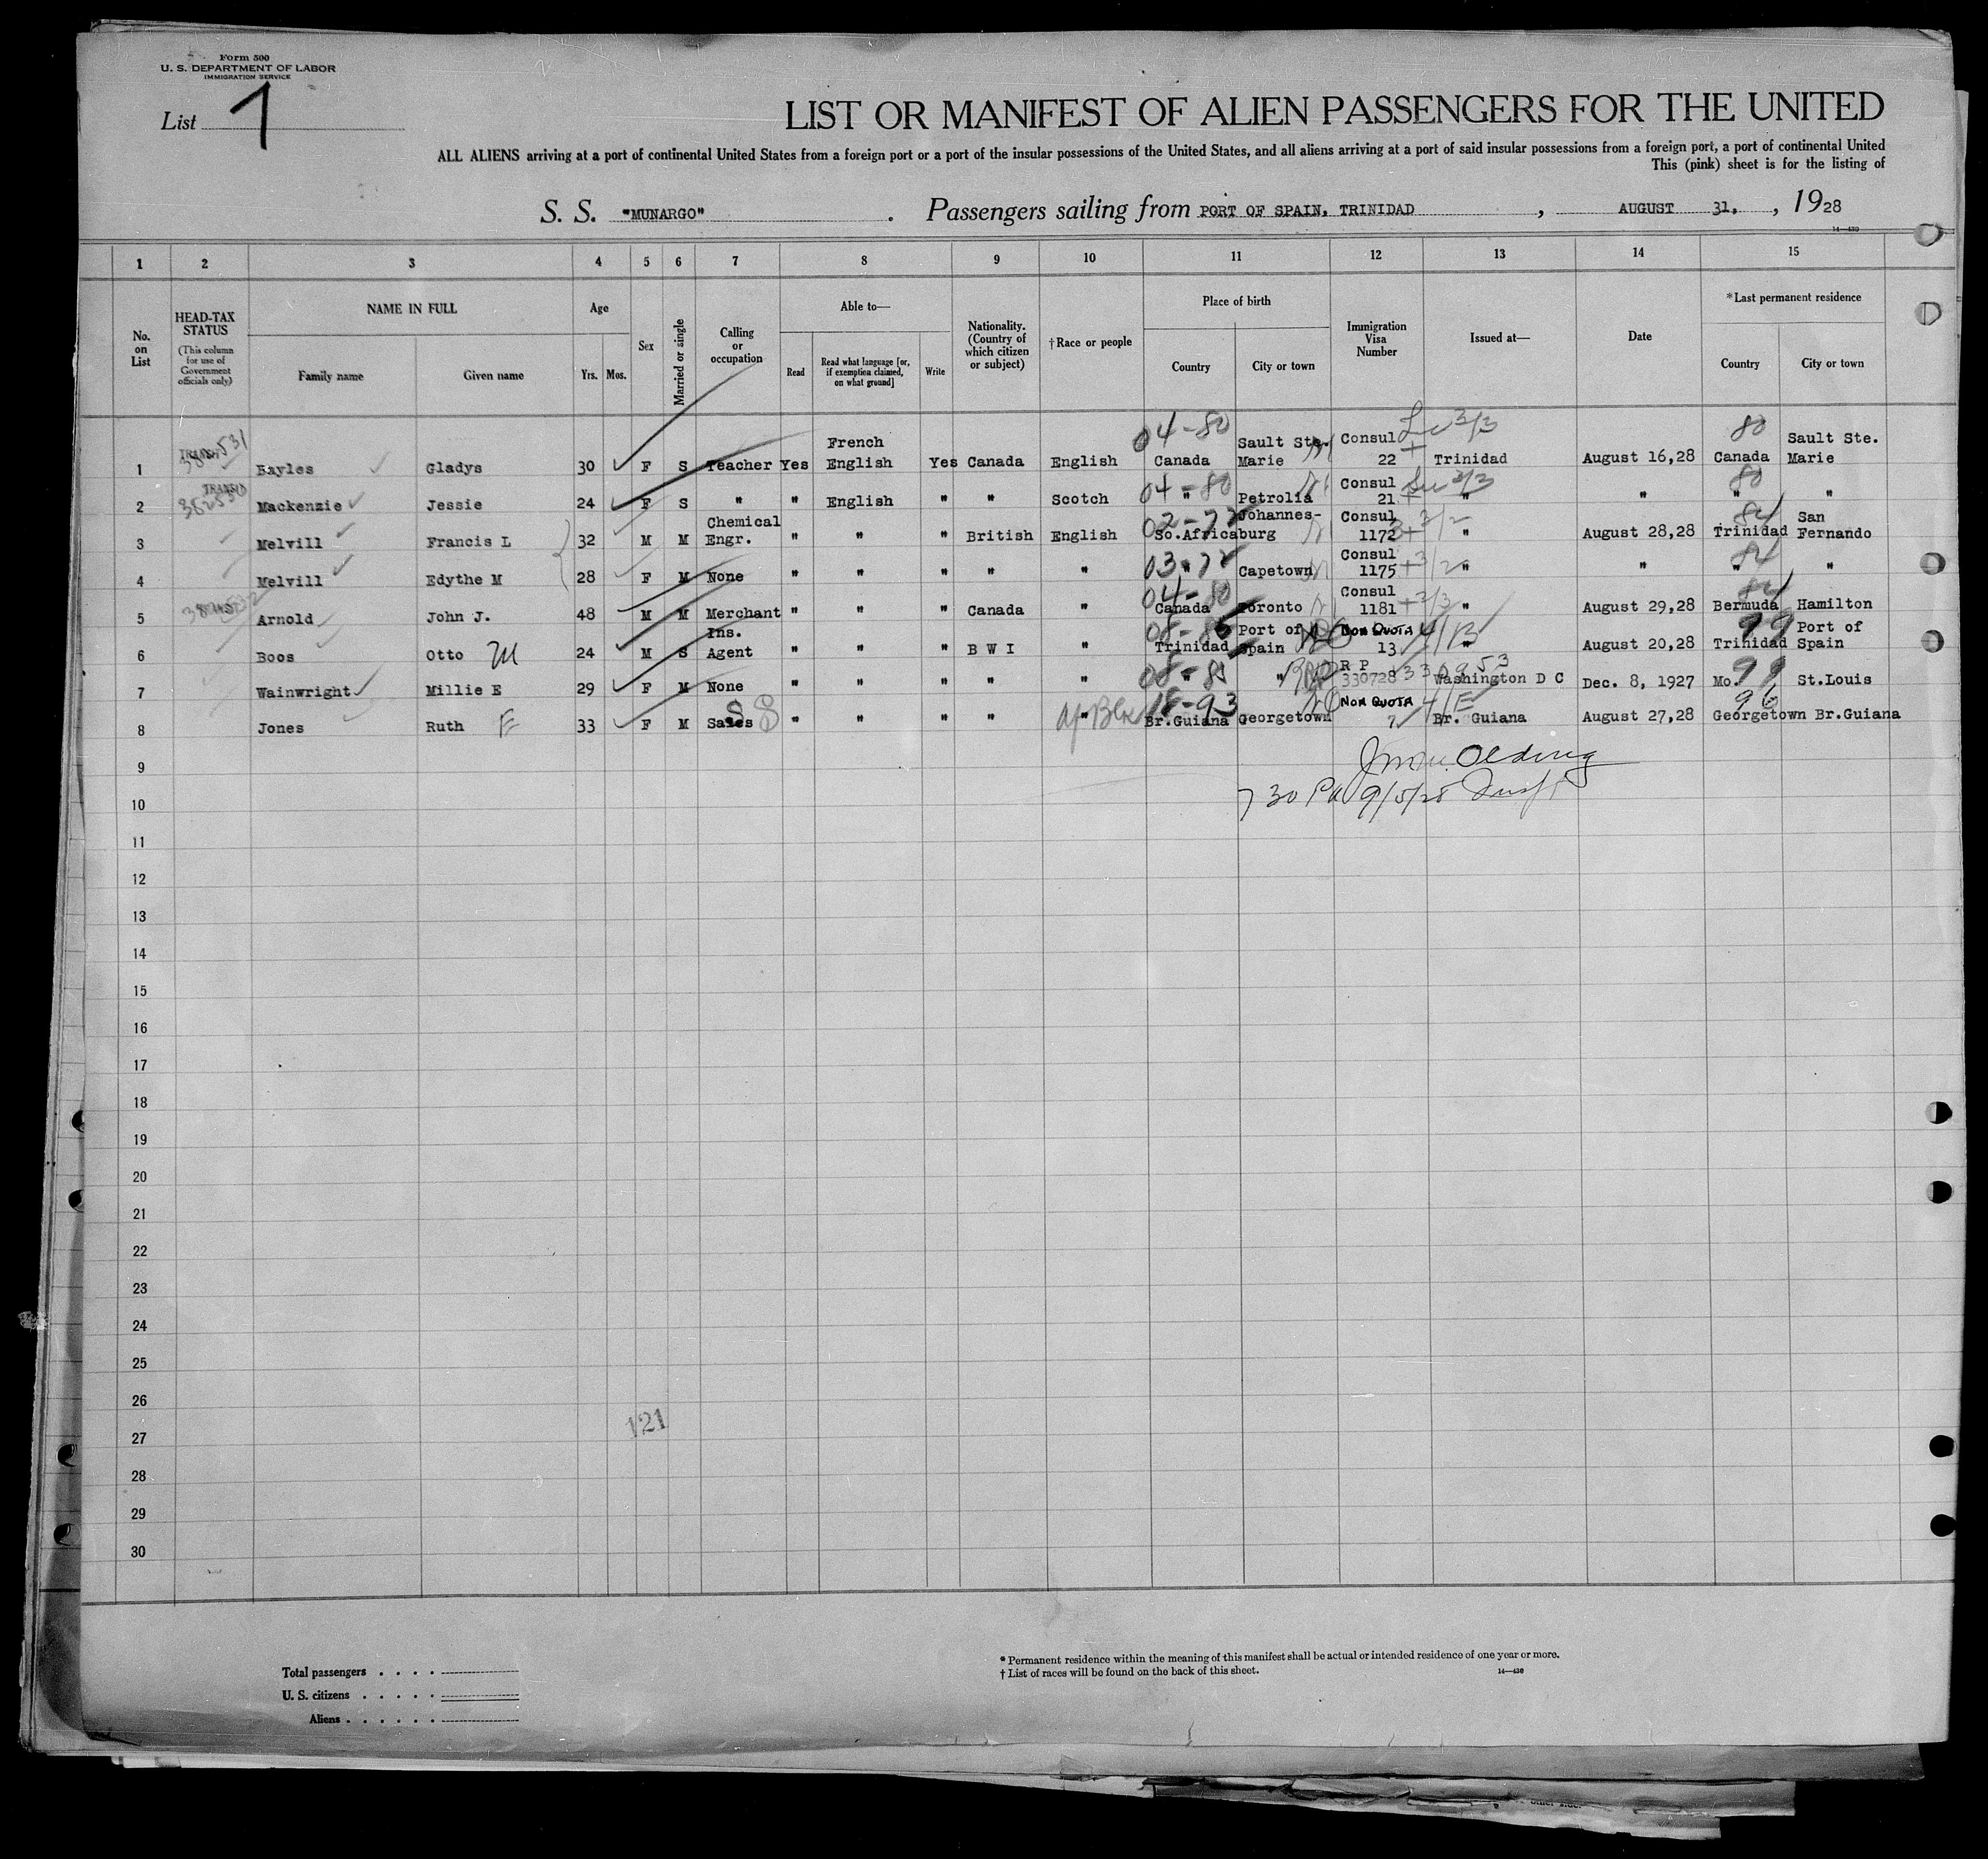 Form 500
U. S. DEPARTMENT OF LABOR
IMMIGRATION SERVICE
List 1
LIST OR MANIFEST OF ALIEN PASSENGERS FOR THE UNITED
ALL ALIENS arriving at a port of continental United States from a foreign port or a port of the insular possessions of the United States, and all aliens arriving at a port of said insular possessions from a foreign port, a port of continental United
This (pink) sheet is for the listing of
S. S. "MUNARGO" . Passengers sailing from PORT OF SPAIN, TRINIDAD , AUGUST 31, , 1928
14—430
1 2 3 4 5 6 7 8 9 10 11 12 13 14 15
No. on List
HEAD-TAX STATUS
(This column for use of Government officials only)
NAME IN FULL
Family name Given name
Age
Yrs. Mos.
Sex
Married or single
Calling or occupation
Able to—
Read
Read what language [or, if exemption claimed, on what ground]
Write
Nationality. (Country of which citizen or subject)
†Race or people
Place of birth
Country City or town
Immigration Visa Number
Issued at—
Date
*Last permanent residence
Country City or town
1 TRANSIT 531 Bayles Gladys 30 F S Teacher Yes French English Yes Canada English 04-80 Canada Sault Ste. Marie Consul 22 3/3 Trinidad August 16,28 80 Canada Sault Ste. Marie
2 TRANSIT 382530 Mackenzie Jessie 24 F S " " English " " Scotch 04-80 " Petrolia Consul 21 3/3 " " 80 " "
3 Melvill Francis L 32 M M Chemical Engr. " " " British English 02-77 So.Africa Johannes-burg Consul 1172 3/2 " August 28,28 84 Trinidad San Fernando
4 Melvill Edythe M 28 F M None " " " " " 03-77 " Capetown Consul 1175 3/2 " " 84 " "
5 Arnold John J. 48 M M Merchant " " " Canada " 04-80 Canada Toronto Consul 1181 3/3 " August 29,28 84 Bermuda Hamilton
6 Boos Otto M 24 M S Ins. Agent " " " B W I " Trinidad Port of Spain Non Quota 13 4/B " August 20,28 99 Trinidad Port of Spain
7 Wainwright Millie E 29 F M None " " " " " " " R P 330728 Washington D C Dec. 8, 1927 99 Mo. St.Louis
8 Jones Ruth F 33 F M Sales " " " " " Af Blk 18-93 Br.Guiana Georgetown Non Quota 7 4/E Br. Guiana August 27,28 96 Georgetown Br.Guiana
9 Olding
10 7 30 PM 9/5/28 Insp
11
12
13
14
15
16
17
18
19
20
21
22
23
24
25
26
121
27
28
29
30
Total passengers . . . .
U. S. citizens . . . . .
Aliens . . . . . .
* Permanent residence within the meaning of this manifest shall be actual or intended residence of one year or more.
† List of races will be found on the back of this sheet. 14—430